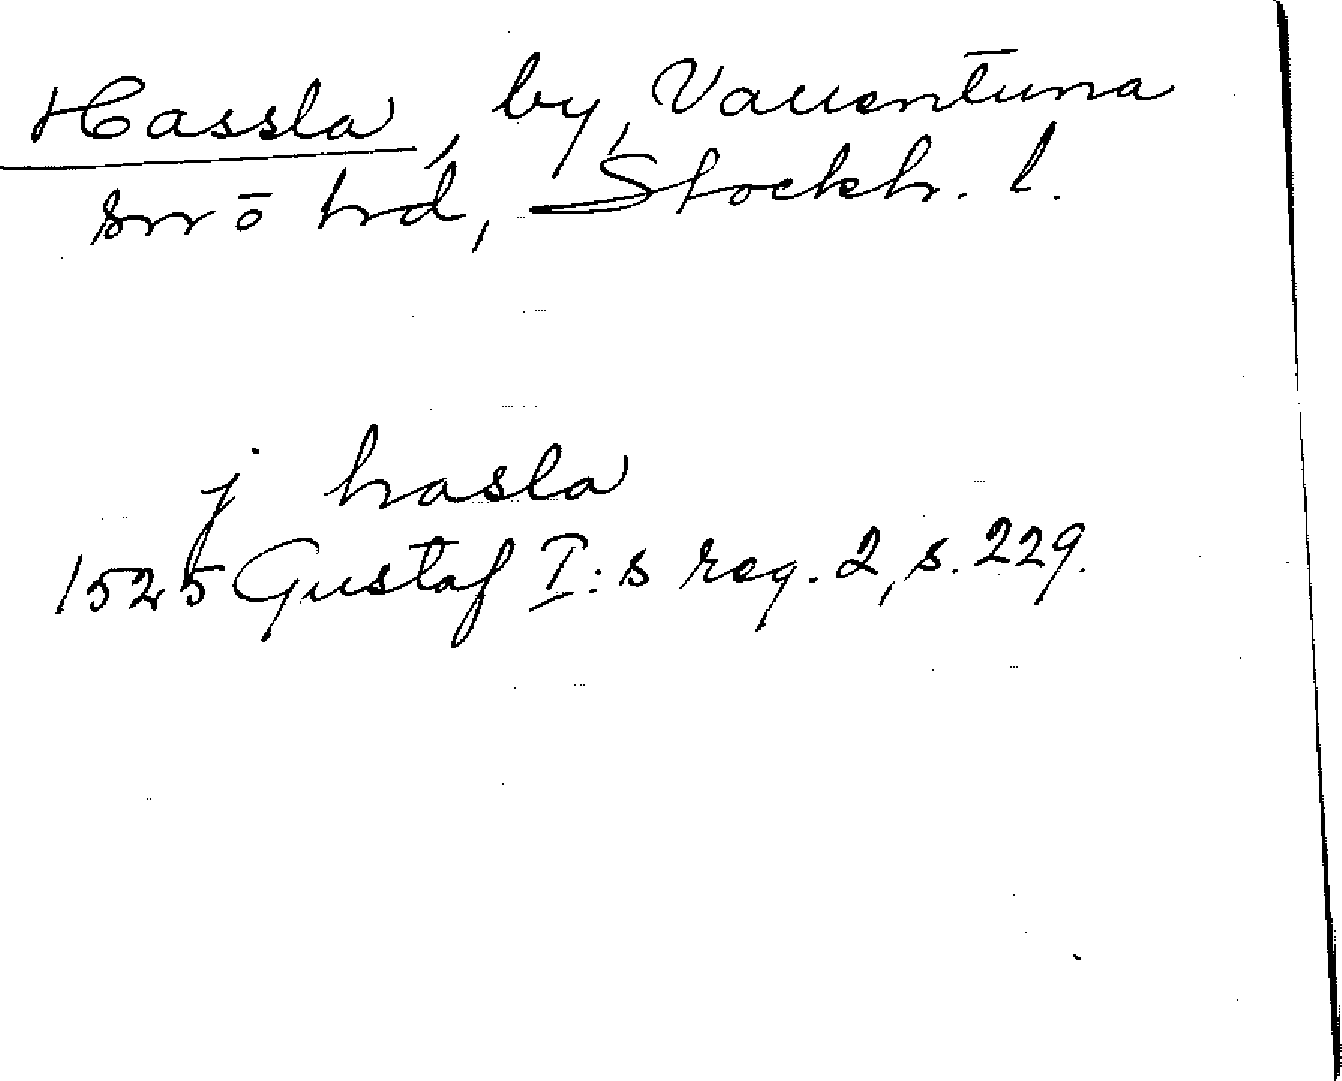 Hassla, by, Vallentuna
sn o hd, Stockh. l.
j hasla
1525 Gustaf I:s reg. 2, s. 229.